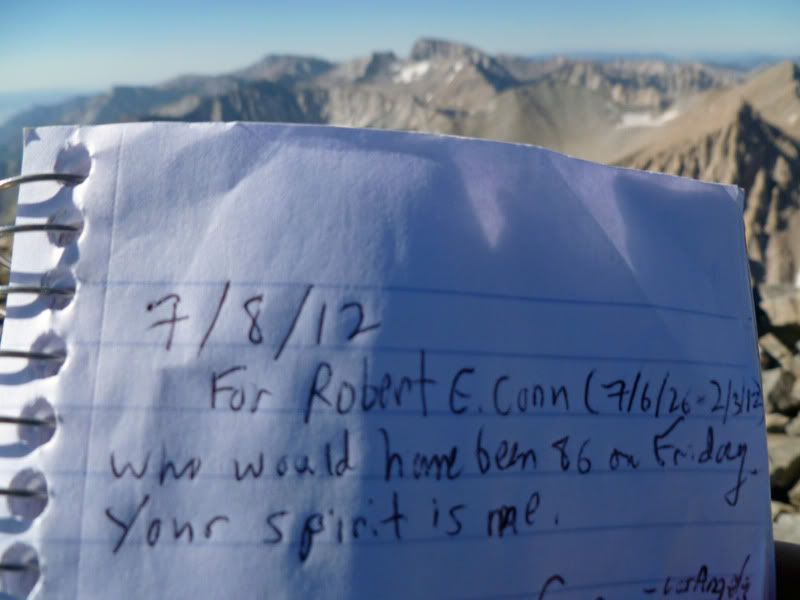 7/8/12
For Robert E. Conn (7/6/26 - 2/3/12
who would have been 86 on Friday.
Your spirit is me.
- Los Angeles